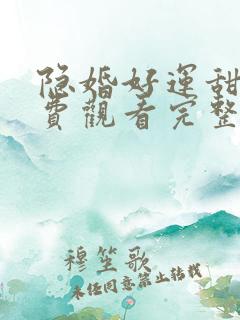 隐婚好運甜
費觀看完整
穆笙歌
未经同意禁止转载